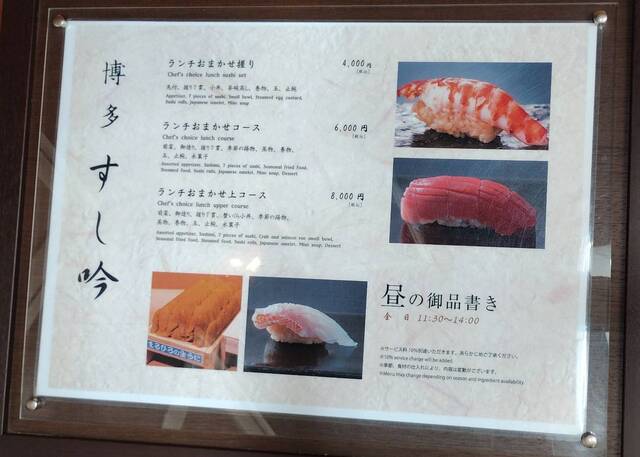 博多すし吟
ランチおまかせ握り 4,000円
Chef's choice lunch sushi set (税込)
先付、握り7貫、小丼、茶碗蒸し、巻物、玉、止椀
Appetizer, 7 pieces of sushi, Small bowl, Steamed egg custard,
Sushi rolls, Japanese omelet, Miso soup
ランチおまかせコース 6,000円
Chef's choice lunch course (税込)
前菜、御造り、握り7貫、季節の揚物、蒸物、巻物、
玉、止椀、水菓子
Assorted appetizer, Sashimi, 7 pieces of sushi, Seasonal fried food,
Steamed food, Sushi rolls, Japanese omelet, Miso soup, Dessert
ランチおまかせ上コース 8,000円
Chef's choice lunch upper course (税込)
前菜、御造り、握り7貫、蟹いくら小丼、季節の揚物、
蒸物、巻物、玉、止椀、水菓子
Assorted appetizer, Sashimi, 7 pieces of sushi, Crab and salmon roe small bowl,
Seasonal fried food, Steamed food, Sushi rolls, Japanese omelet, Miso soup, Dessert
昼の御品書き
全日 11:30～14:00
※サービス料10%別途いただきます。あらかじめご了承ください。
※10% service charge will be added.
※季節、食材の仕入れにより、内容は変動がございます。
※Menu may change depending on season and ingredient availability.